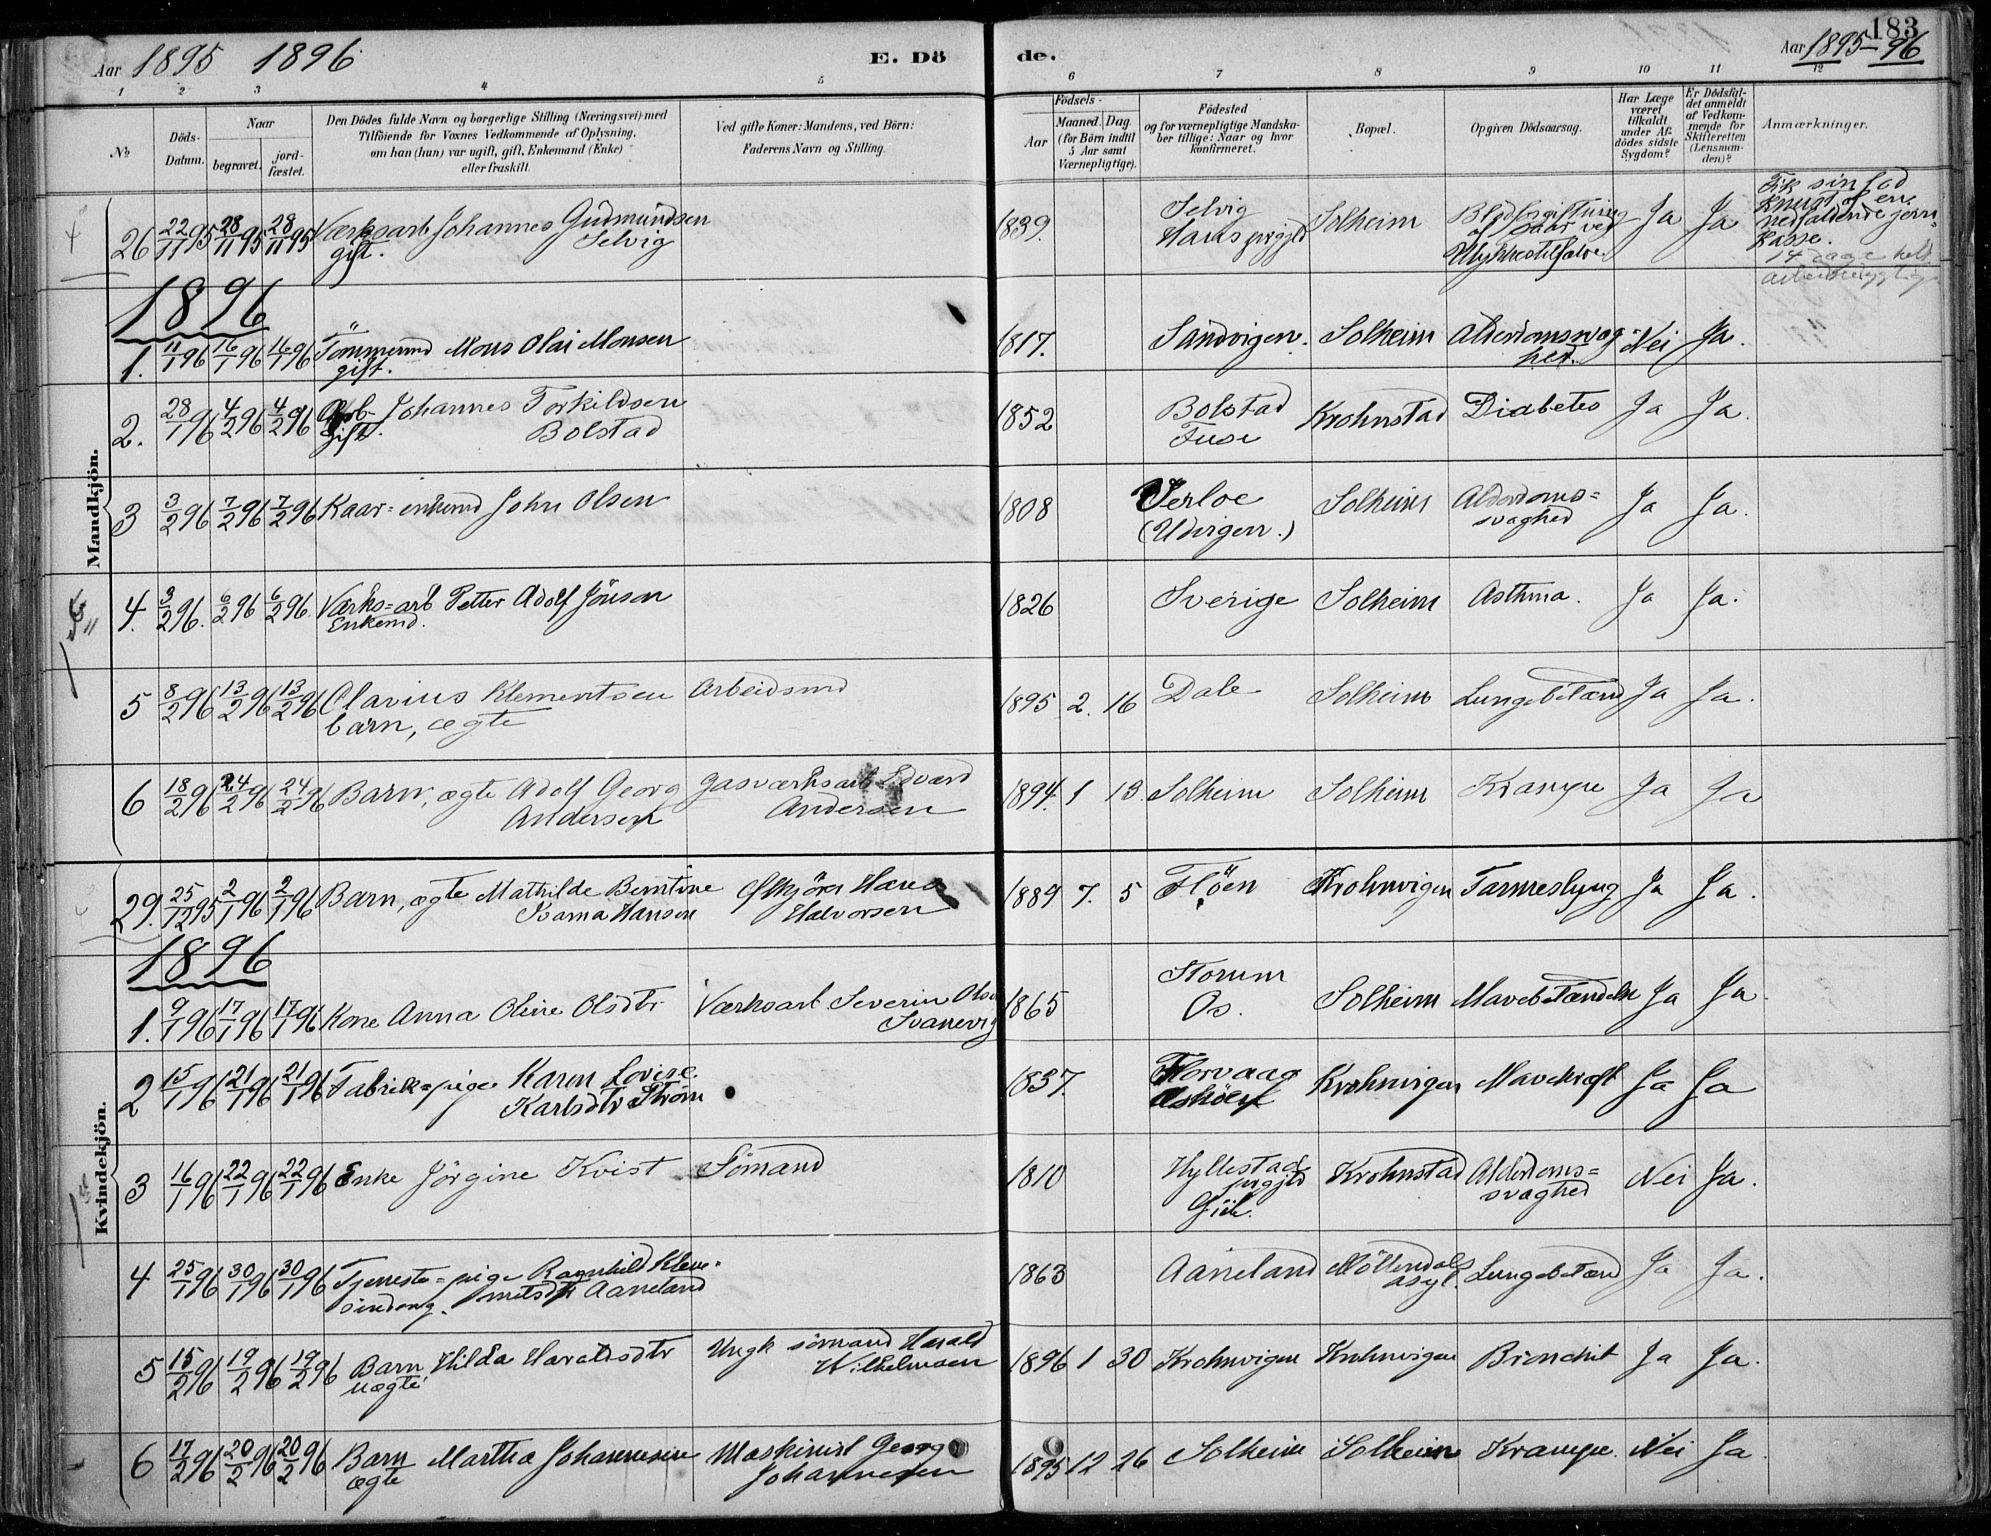 Aar 1895 1896
E. Dö
de.
183
Aar 1895-96
1 2 3 4 5 6 7 8 9 10 11 12
No
Döds-Datum.
Naar
begravet.
jord-fæstet.
Den Dödes fulde Navn og borgerlige Stilling (Næringsvei) med
Tilföiende for Voxnes Vedkommende af Oplysning,
om han (hun) var ugift, gift, Enkemand (Enke)
eller fraskilt.
Ved gifte Koner: Mandens, ved Börn:
Faderens Navn og Stilling.
Födsels-
Aar
Maaned. Dag.
(for Börn indtil
5 Aar samt
Værnepligtige).
Födested
og for værnepligtige Mandska-
ber tillige: Naar og hvor
konfirmeret.
Bopæl.
Opgiven Dödsaarsag.
Har Læge
været
tilkaldt
under Af-
dödes sidste
Sygdom?
Er Dödsfal-
det anmeldt
af Vedkom-
mende for
Skifteretten
(Lensman-
den)?
Anmærkninger.
Mandkjön.
26 22/11 95 28/11 95 28/11 95 Værksarb Johannes Gudmundsen
Selvig
gift.
1839. Selvig
Haus prgjld Solheim Blodforgiftning
af saar ved
Ulykkestilfælde Ja Ja
Fik sin fod
knust af en
nedfaldende jern-
kasse.
14 dage helt
1896
1. 11/1 96 16/1 96 16/1 96 Tömmermd Mons Olai Monsen
gift.
1817. Sandvigen. Solheim Alderdomsvag-
hed. Nei Ja.
2. 28/1 96 4/2 96 4/2 96 Arb- Johannes Torkildsen
gift. Bolstad
1852 Bolstad
Fuse Krohnstad Diabetes Ja Ja.
3 3/2 96 7/2 96 7/2 96 Kaar-enkemd John Olsen
1808 Serloe
(Utvigen.) Solheim Alderdoms-
svaghed Ja Ja.
4. 3/2 96. 6/2 96 6/2 96. Værks-arb Petter Adolf Jönson
Enkemd.
1826 Sverige Solheim Asthma. Ja Ja.
5 8/2 96 13/2 96 13/2 96 Olavius Klementsen Arbeidsmd
barn, ægte
1895 2. 16 Dale Solheim Lungebetænd Ja Ja.
6 18/2 96 24/2 96 24/2 96 Barn, ægte Adolf Georg Gasværksarb Edvard
Andersen Andersen
1894. 1 13. Solheim Solheim Krampe Ja Ja
Kvindekjön.
29. 25/12 95 2/1 96 2/1 96 Barn, ægte Mathilde Berntine
Ivarna Hansen Halvorsen
1889 7. 5 Flöen Krohnvigen Tarmeslyng Ja Ja.
1896
1. 9/1 96 17/1 96 17/1 96 Kone Anna Oline Olsdtr Værksarb Severin Olsen
Svanevig
1865 Storum
Os. Solheim Mavebetændelse Ja Ja.
2 15/1 96 21/1 96 21/1 96 Fabrik-pige Karen Lovise
Karlsdtr Ström
1837. Horvaag
Asköen Krohnvigen Mavekræft Ja Ja
3 16/1 96 22/1 96 22/1 96 Enke Jörgine Kvist Sömand
1810 Hyllestad
prgjld Krohnstad Alderdoms-
svaghed Nei Ja.
4 25/1 96 30/1 96 30/1 96 Tjeneste-pige Ragnhild Kle-
mitsdtr Aaneland
sindsvg.
1863 Aaneland Möllendals
asyl. Lungebetænd Ja Ja.
5 15/2 96 19/2 96 19/2 96 Barn Hilda Haraldsdtr Ungk sömand Harald
uægte Wilhelmsen
1896 1 30 Krohnvigen Krohnvigen Bronchit Ja Ja.
6 17/2 96 20/2 96 20/2 96 Barn Martha Johannesen Maskinist Georg
ægte Johannesen
1895 12 26 Solheim Solheim Krampe Nei Ja.